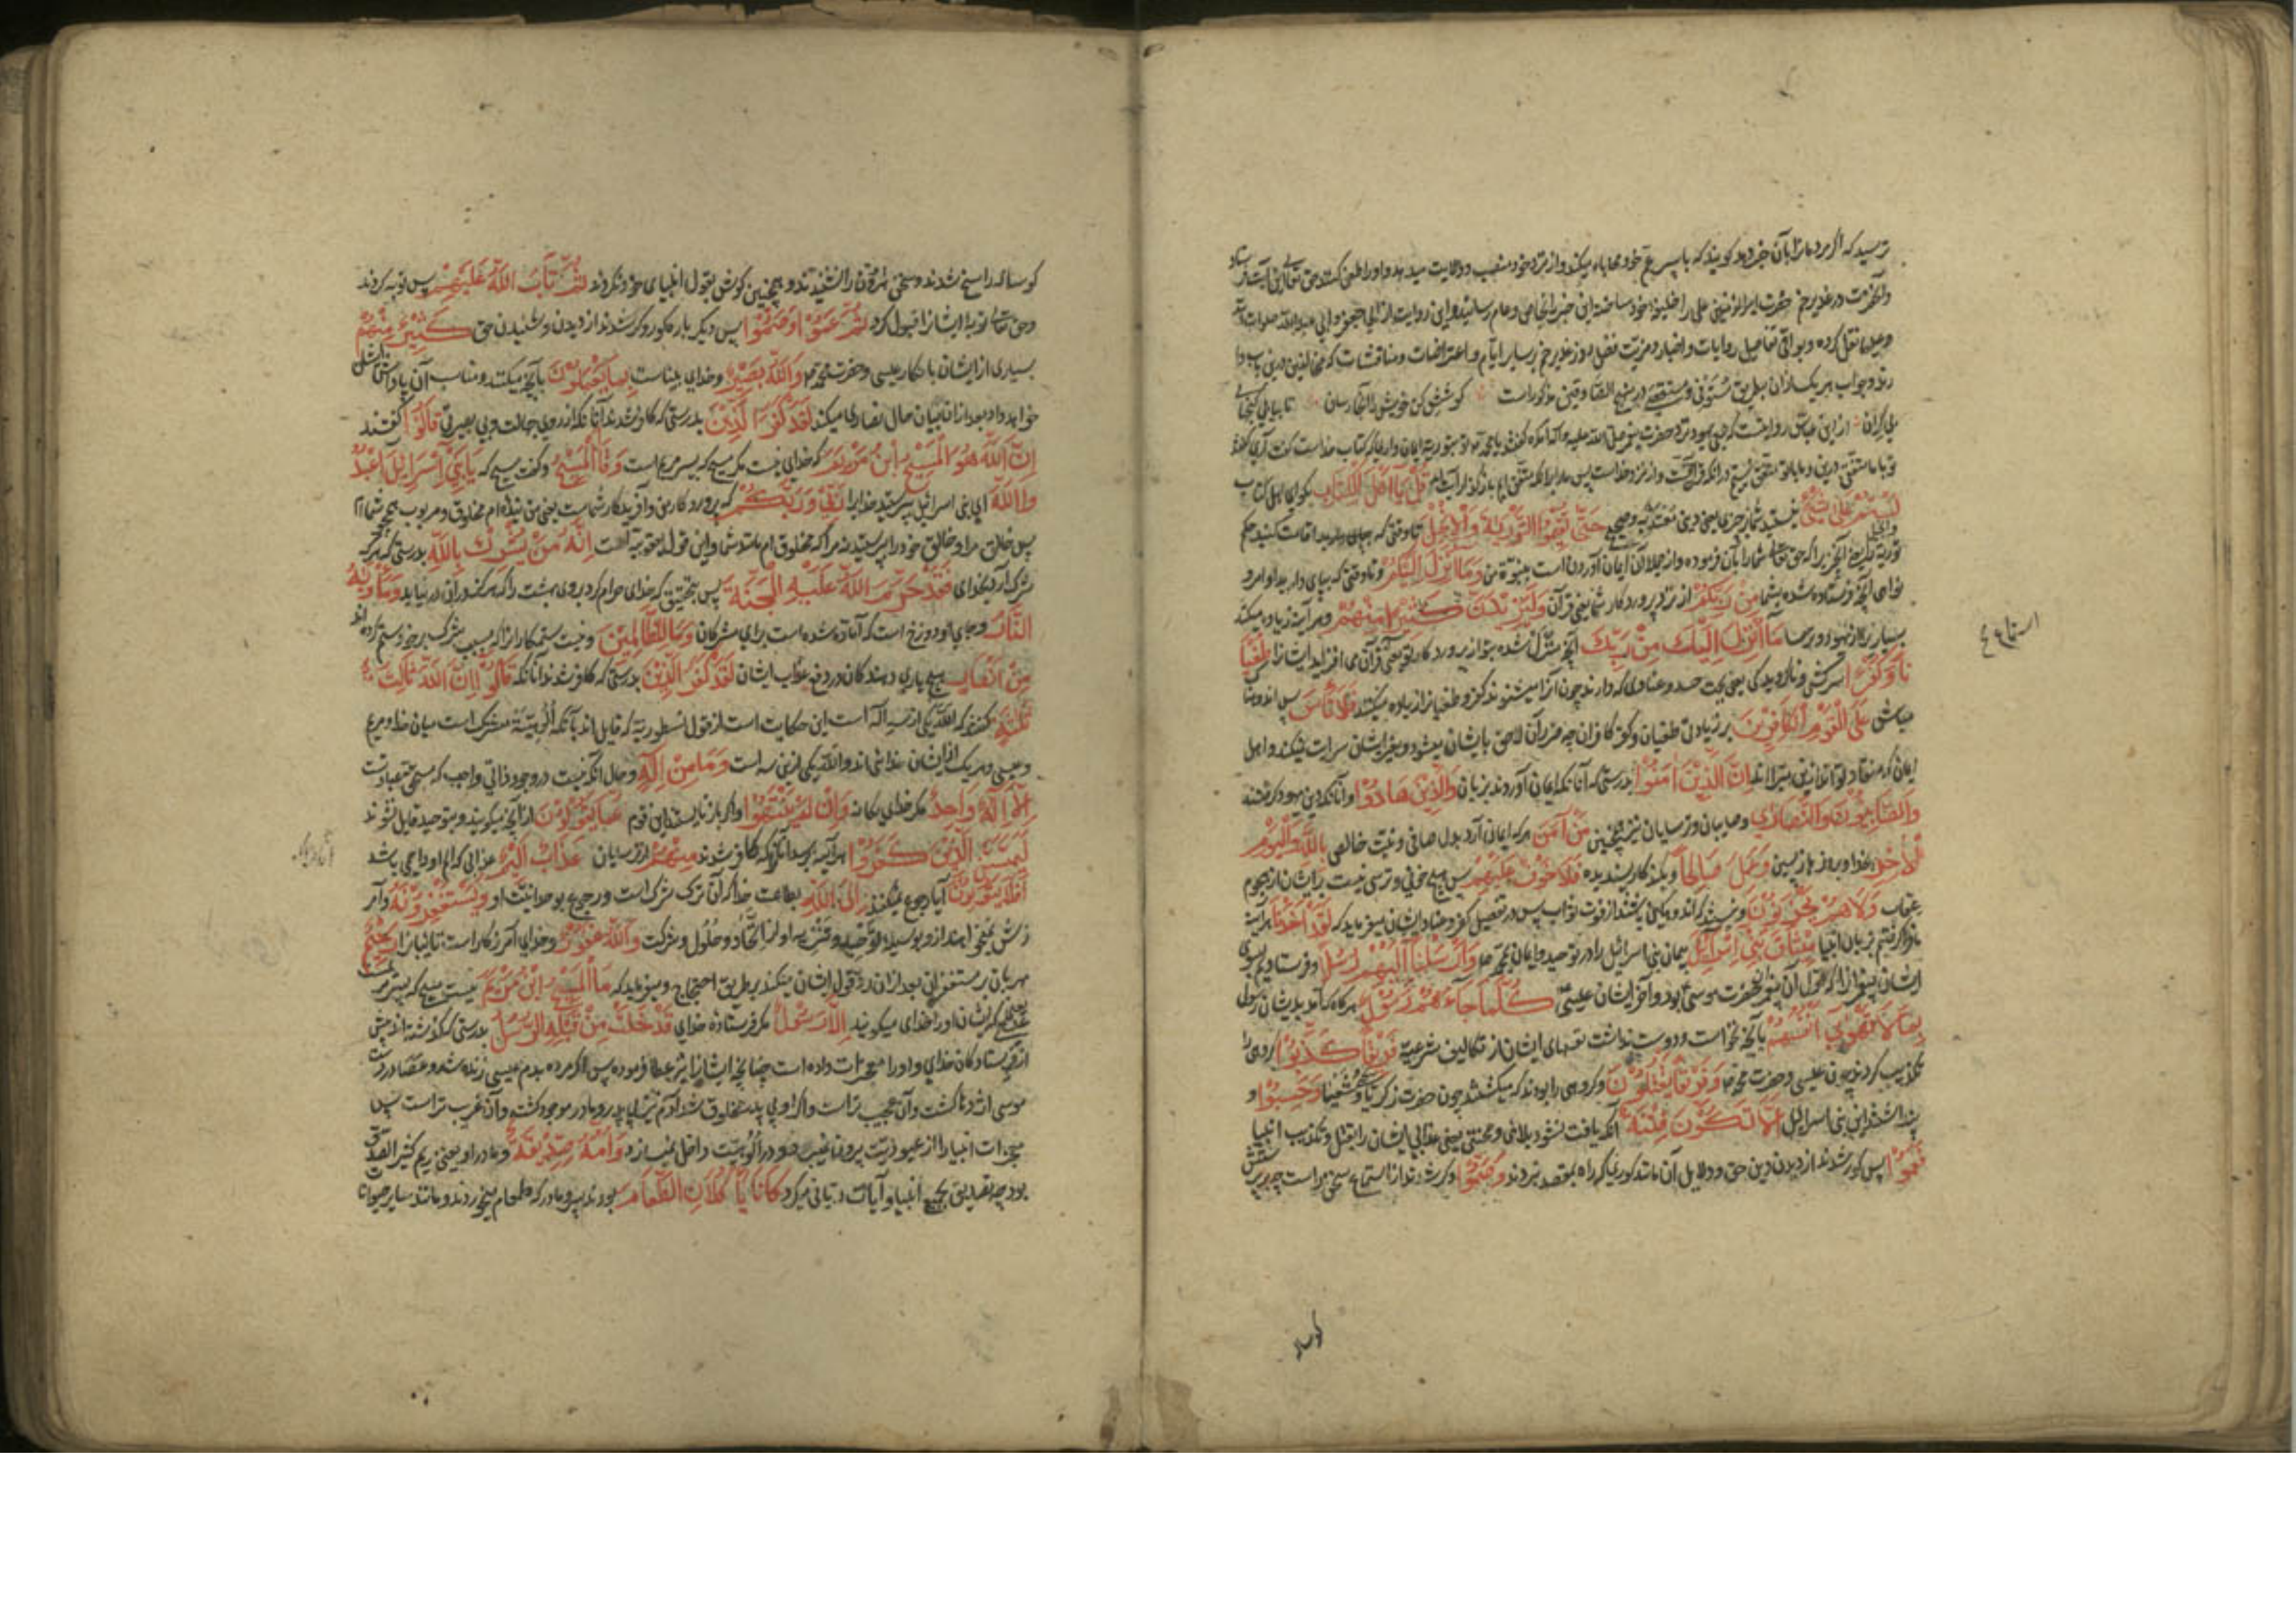 ترسید که اگر مردمانرا بآن خبر دهد گویند که با پسر عم خود محابا میکند و از نزد خود منصب و ولایت میدهد و او را طعن کنند حق تعالی این آیت فرستاد
و آنحضرت در غدیر خم حضرت امیرالمؤمنین علی را خلیفه خود ساخته این خبر را بخاص و عام رسانید و این روایت از ابی جعفر و ابی عبدالله صلوات الله
نقل کرده و بواقی تفاصیل روایات و اخبار و مزیت فضل روز غدیر خم بر سایر ایام و اعتراضات و مناقشات که مخالفین درین باب دا
رند و جواب هر یک از آن بطریق مستوفی و مستقصی در منهج الصادقین مذکور است کوشش کن خویش را آنجا رسان تا بیابی گنجهای
بی‌کران از ابن عباس روایتست که جمعی یهود نزد حضرت پیغمبر صلی الله علیه و آله آمده گفتند یا محمد تو بتوریة ایمان داری که کتاب خداست گفت آری گفتند
تو با ما متفقی درین و ما با تو متفق نیستیم قُلْ يَا أَهْلَ الْكِتَابِ بگو ای اهل کتاب
لَسْتُمْ عَلَى شَيْءٍ نیستید شما بر چیزی یعنی دینی معتد به و صحیح حَتَّى تُقِيمُوا التَّوْرَيةَ وَالْإِنْجِيلَ تا وقتی که بپای دارید و اقامت کنید حکم
توریة و انجیل را یعنی آنچیزیرا که حق تعالی شما را بآن فرموده و از جمله آن ایمان آوردنست بنبوة من وَمَا أُنْزِلَ إِلَيْكُمْ و تا وقتی که بپای دارید اوامر و
نواهی آنچه فرستاده شده بشما مِنْ رَبِّكُمْ از نزد پروردگار شما یعنی قرآن وَلَيَزِيدَنَّ كَثِيرًا مِنْهُمْ و هر آینه زیاده میکند
بسیاری را از یهود و ترسا مَا أُنْزِلَ إِلَيْكَ مِنْ رَبِّكَ آنچه منزل شده بتو از پروردگار تو یعنی قرآن می‌افزاید ایشانرا طُغْيَا
نًا وَكُفْرًا سرکشی و ناگرویدگی یعنی بجهت حسد و عنادی که دارند چون آنرا میشنوند کفر و طغیانرا زیاده میکنند فَلَا تَأْسَ پس اندوهناک
مباش عَلَى الْقَوْمِ الْكَافِرِينَ بر زیادتی طغیان و کفر کافران چه ضرر آن لاحق بایشان میشود و بغیر ایشان سرایت نمیکند و اهل
إِنَّ الَّذِينَ آمَنُوا بدرستی که آنانکه ایمان آوردند بزبان وَالَّذِينَ هَادُوا و آنانکه دین یهود گرفتند
وَالصَّابِئُونَ وَالنَّصَارَى و صابیان و ترسایان نیز همچنین مَنْ آمَنَ هر که ایمان آرد بدل صافی و نیت خالص بِاللَّهِ وَالْيَوْمِ
الْآخِرِ بخدا و بروز بازپسین وَعَمِلَ صَالِحًا و بکند کار پسندیده فَلَا خَوْفٌ عَلَيْهِمْ پس هیچ خوفی و ترسی نیست بر ایشان از هجوم
عقاب وَلَا هُمْ يَحْزَنُونَ و نیستند که اندوهگین باشند از فوت ثواب پس در تفصیل کفر و عناد ایشان میفرماید که لَقَدْ أَخَذْنَا هرآینه
ما فرا گرفتیم بزبان انبیا مِيثَاقَ بَنِي إِسْرَائِيلَ پیمان بنی اسرائیل را در توحید و ایمان بمحمد وَأَرْسَلْنَا إِلَيْهِمْ رُسُلًا و فرستادیم بسوی
ایشان پیغمبرانرا که اول آن پیغمبران حضرت موسی بود و آخر ایشان عیسی كُلَّمَا جَاءَهُمْ رَسُولٌ هر گاه که آمد بدیشان رسولی
بِمَا لَا تَهْوَى أَنْفُسُهُمْ بآنچه نخواست و دوست نداشت نفسهای ایشان از تکالیف شرعیه فَرِيقًا كَذَّبُوا گروهی را
تکذیب کردند چون عیسی و حضرت محمد وَفَرِيقًا يَقْتُلُونَ و گروهی را بودند که میکشتند چون حضرت زکریا و یحیی و شعیا وَحَسِبُوا و
پنداشتند این بنی اسرائیل أَلَّا تَكُونَ فِتْنَةٌ آنکه یافت نشود بلائی و محنتی یعنی عذابی ایشانرا بقتل و تکذیب انبیا
فَعَمُوا پس کور شدند از دیدن دین حق و دلایل آن مانند کوری که راه بمقصد نبردند وَصَمُّوا و کر شدند از استماع سخن راست
استماع
گوساله
گوساله راسخ شدند و سخن هارون را نشنیدند و همچنین گوش بقول انبیای خود نکردند ثُمَّ تَابَ اللَّهُ عَلَيْهِمْ پس توبه کردند
و حق تعالی توبه ایشانرا قبول کرد ثُمَّ عَمُوا وَصَمُّوا پس دیگر باره کور و کر شدند از دیدن و شنیدن حق كَثِيرٌ مِنْهُمْ
بسیاری از ایشان بانکار عیسی و حضرت محمد وَاللَّهُ بَصِيرٌ و خدای بیناست بِمَا يَعْمَلُونَ بآنچه میکنند و مناسب آن پاداش ایشان
خواهد داد بعد از آن بیان حال نصاری میکند لَقَدْ كَفَرَ الَّذِينَ بدرستی که کافر شدند آنانکه از روی جهالت و بی بصیرتی قَالُوا گفتند
إِنَّ اللَّهَ هُوَ الْمَسِيحُ ابْنُ مَرْيَمَ که خدای نیست مگر مسیح که پسر مریم است وَقَالَ الْمَسِيحُ و گفت مسیح که يَا بَنِي إِسْرَائِيلَ اعْبُدُ
وا اللَّهَ ای بنی اسرائیل بپرستید خدایرا رَبِّي وَرَبَّكُمْ که پروردگار من و آفریدگار شماست یعنی من بنده‌ام مخلوق و مربوب همچو شما
پس خالق مرا و خالق خود را پرستید نه مرا که مخلوق‌ام مانند شما و این قول یعقوبیه است إِنَّهُ مَنْ يُشْرِكْ بِاللَّهِ بدرستی که هر که
شرک آرد بخدای فَقَدْ حَرَّمَ اللَّهُ عَلَيْهِ الْجَنَّةَ پس بتحقیق که خدای حرام کرد بر وی بهشت را که هرگز در آن درنیاید وَمَأْوَيهُ
النَّارُ و جای او دوزخ است که آماده شده است برای مشرکان وَمَا لِلظَّالِمِينَ و نیست ستمکارانرا که بسبب شرک بر خود ستم کرده‌اند
مِنْ أَنْصَارٍ هیچ یاری دهندگان در دفع عذاب ایشان لَقَدْ كَفَرَ الَّذِينَ بدرستی که کافر شدند آنانکه قَالُوا إِنَّ اللَّهَ ثَالِثُ
ثَلَثَةٍ گفتند که الله یکی از سه اله است این حکایت است از قول نسطوریه که قایل‌اند بآنکه الوهیت مشترک است میان خدا و مریم
و عیسی و هر یک از ایشان خدائی‌اند و الله یکی ازین سه است وَمَا مِنْ إِلَهٍ و حال آنکه نیست در وجود ذاتی واجب که مستحق عبادتست
إِلَّا إِلَهٌ وَاحِدٌ مگر خدای یگانه وَإِنْ لَمْ يَنْتَهُوا و اگر باز نایستند این قوم عَمَّا يَقُولُونَ از آنچه میگویند و بتوحید قایل نشوند
لَيَمَسَّنَّ الَّذِينَ كَفَرُوا هرآینه برسد آنانکه کافر شدند مِنْهُمْ از ترسایان عَذَابٌ أَلِيمٌ عذابی که الم او دایمی باشد
أَفَلَا يَتُوبُونَ آیا رجوع نمیکنند إِلَى اللَّهِ بطاعت خدا که آن ترک شرک است و رجوع بوحدانیت او وَيَسْتَغْفِرُونَهُ و آمر
زش نمیخواهند از و بوسیله توحید و تنزیه او از اتحاد و حلول و شرکت وَاللَّهُ غَفُورٌ و خدای آمرزگار است تائبانرا رَحِيمٌ
مهربان بر مستغفران بعد از آن رد قول ایشان میکند بطریق احتجاج و میفرماید که مَا الْمَسِيحُ ابْنُ مَرْيَمَ نیست مسیح که پسر مریم است
یعنی کسی که ایشان او را خدای میگویند إِلَّا رَسُولٌ مگر فرستاده خدای قَدْ خَلَتْ مِنْ قَبْلِهِ الرُّسُلُ بدرستی که گذشته‌اند پیش
از فرستادگان خدای و او را معجزات داده است چنانچه ایشانرا نیز عطا فرموده پس اگر مرده بدم عیسی زنده شد و عصا در دست
موسی اژدها گشت و آن عجیب‌تر است و اگر او بی پدر مخلوق شد آدم نیز بی پدر و مادر موجود گشته و آن غریب‌تر است پس
معجزات انبیا را از عبودیت بیرون نمیبرد و در الوهیت داخل نمیسازد وَأُمُّهُ صِدِّيقَةٌ و مادر او یعنی مریم کثیر الصدق
بود چه تصدیق بجمیع انبیا و آیات ربانی میکرد كَانَا يَأْكُلَانِ الطَّعَامَ بودند پسر و مادر که طعام میخوردند و مانند سایر حیوانات